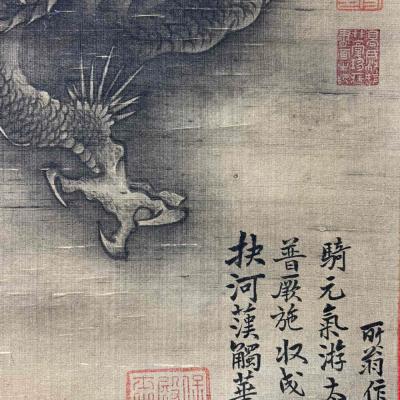 扶河漢觸華
普厥施收成
騎元氣游太
所翁作